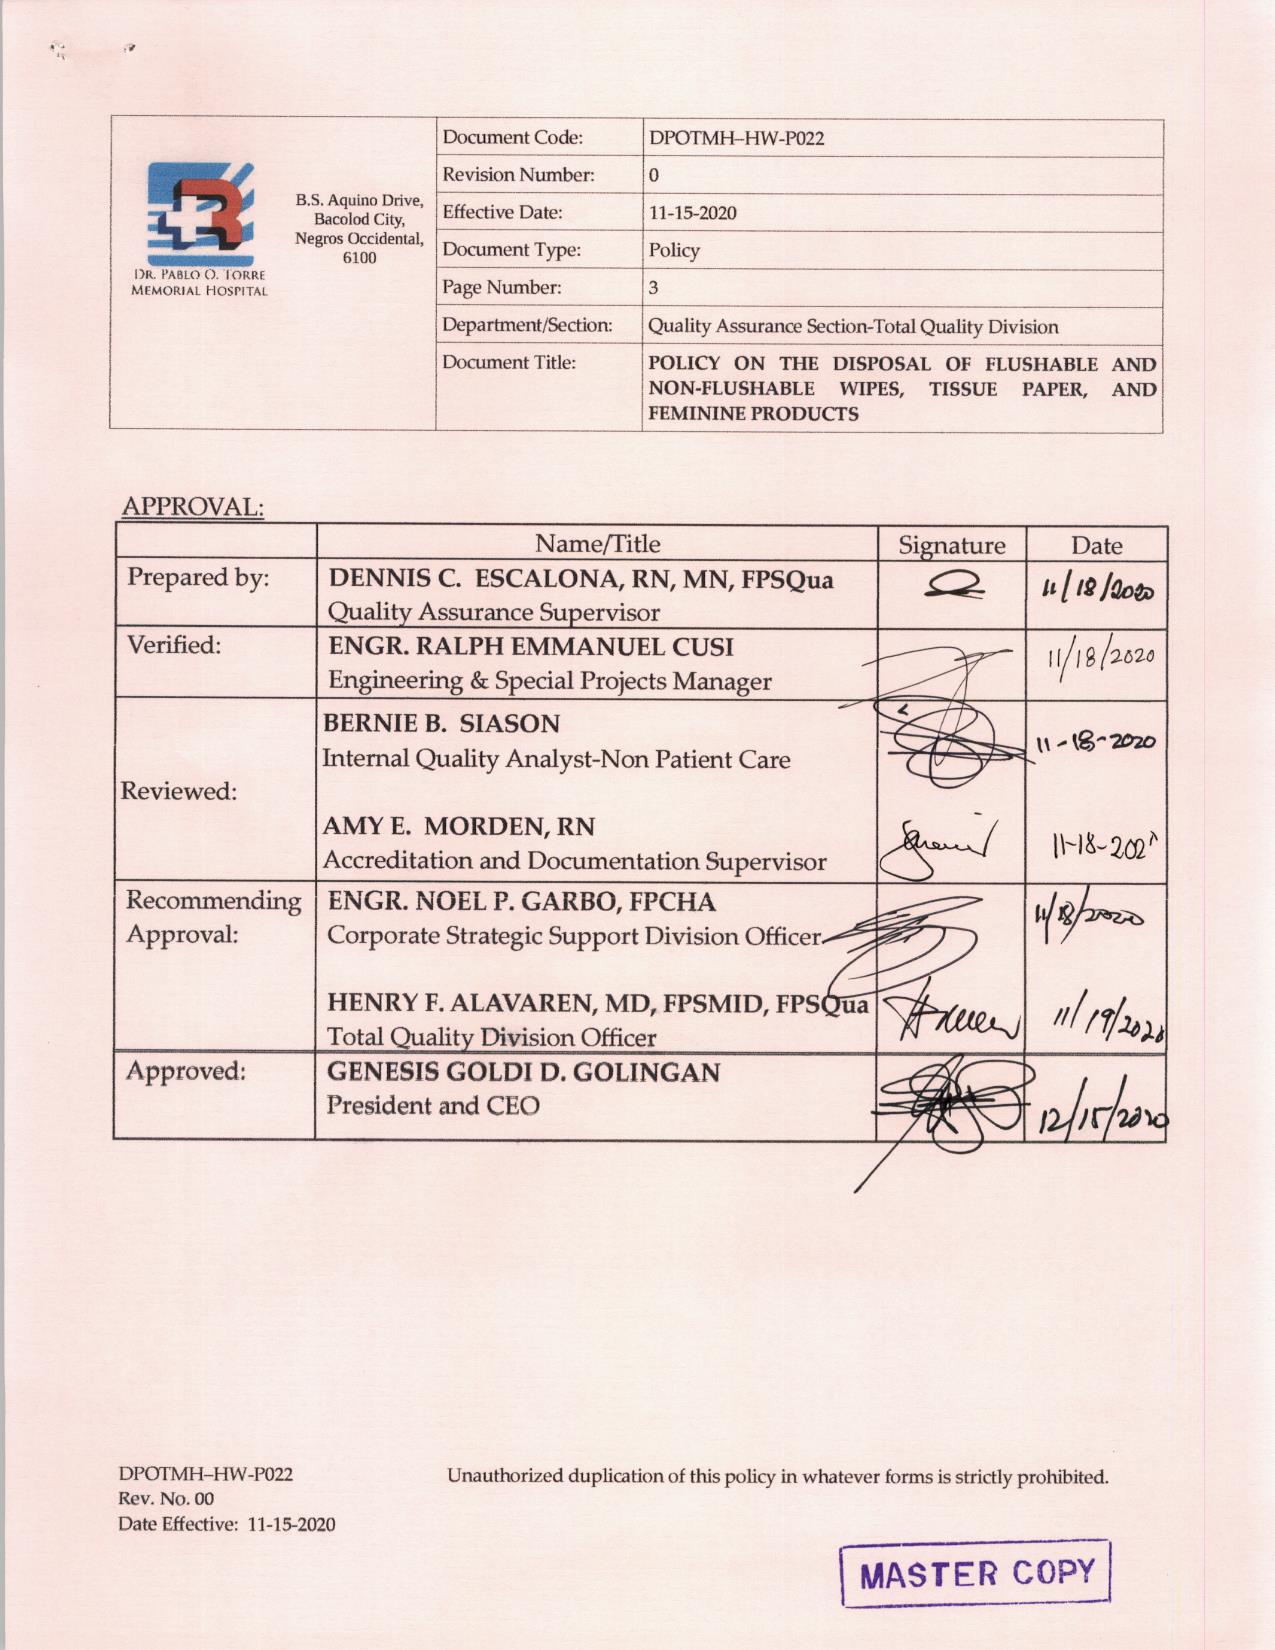 DR. PABLO O. TORRE
MEMORIAL HOSPITAL
B.S. Aquino Drive,
Bacolod City,
Negros Occidental,
6100
Document Code: DPOTMH–HW-P022
Revision Number: 0
Effective Date: 11-15-2020
Document Type: Policy
Page Number: 3
Department/Section: Quality Assurance Section-Total Quality Division
Document Title: POLICY ON THE DISPOSAL OF FLUSHABLE AND
NON-FLUSHABLE WIPES, TISSUE PAPER, AND
FEMININE PRODUCTS
APPROVAL:
Name/Title Signature Date
Prepared by: DENNIS C. ESCALONA, RN, MN, FPSQua 11/18/2020
Quality Assurance Supervisor
Verified: ENGR. RALPH EMMANUEL CUSI 11/18/2020
Engineering & Special Projects Manager
BERNIE B. SIASON 11-18-2020
Internal Quality Analyst-Non Patient Care
Reviewed:
AMY E. MORDEN, RN
Accreditation and Documentation Supervisor
Recommending ENGR. NOEL P. GARBO, FPCHA 11/18/2020
Approval: Corporate Strategic Support Division Officer
HENRY F. ALAVAREN, MD, FPSMID, FPSQua 11/19/2020
Total Quality Division Officer
Approved: GENESIS GOLDI D. GOLINGAN 12/15/2020
President and CEO
DPOTMH–HW-P022 Unauthorized duplication of this policy in whatever forms is strictly prohibited.
Rev. No. 00
Date Effective: 11-15-2020
MASTER COPY